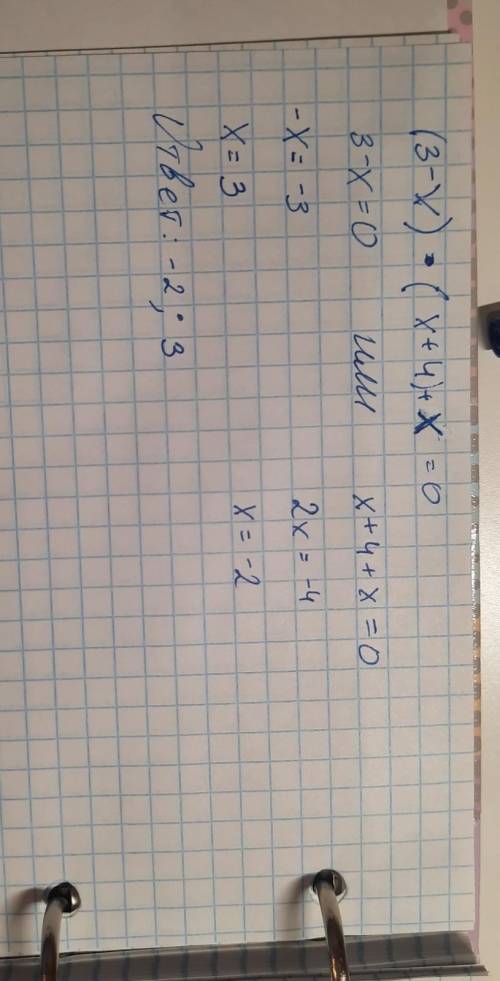 (3-x) · (x+4)+x=0
3-x=0 или x+4+x=0
-x=-3 2x=-4
x=3 x=-2
Ответ: -2; 3